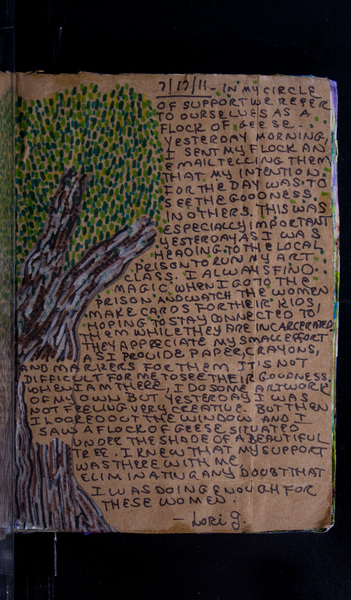 7/17/11 - IN MY CIRCLE
OF SUPPORT WE REFER
TO OURSELVES AS A
FLOCK OF GEESE.
YESTERDAY MORNING,
I SENT MY FLOCK AN
EMAIL TELLING THEM
THAT MY INTENTION
FOR THE DAY WAS TO
SEE THE GOODNESS
IN OTHERS. THIS WAS
ESPECIALLY IMPORTANT
YESTERDAY AS I WAS
HEADING TO THE LOCAL
PRISON TO RUN MY ART
CLASS. I ALWAYS FIND
MAGIC WHEN I GO TO THE
PRISON AND WATCH THE WOMEN
MAKE CARDS FOR THEIR KIDS,
HOPING TO STAY CONNECTED TO
THEM WHILE THEY ARE INCARCERATED.
THEY APPRECIATE MY SMALL EFFORT
AS I PROVIDE PAPER, CRAYONS,
AND MARKERS FOR THEM. IT IS NOT
DIFFICULT FOR ME TO SEE THEIR GOODNESS.
WHEN I AM THERE, I DO SOME ARTWORK
OF MY OWN BUT YESTERDAY I WAS
NOT FEELING VERY CREATIVE. BUT THEN
I LOOKED OUT THE WINDOW AND I
SAW A FLOCK OF GEESE SITUATED
UNDER THE SHADE OF A BEAUTIFUL
TREE. I KNEW THAT MY SUPPORT
WAS THERE WITH ME,
ELIMINATING ANY DOUBT THAT
I WAS DOING ENOUGH FOR
THESE WOMEN.
- LORI G.